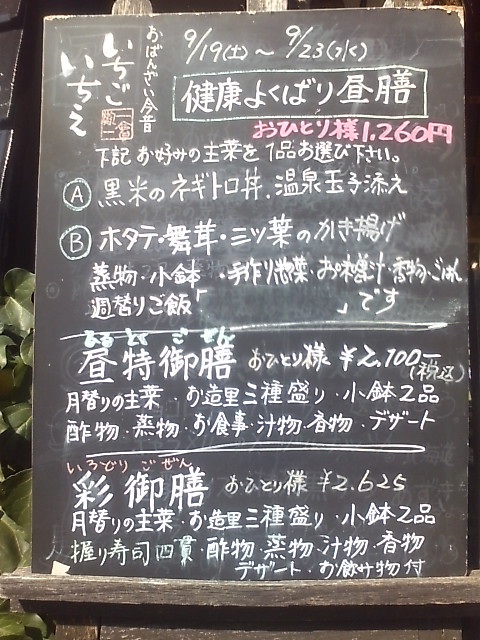 おばんざい今昔
いちご
いちえ
9/19(土)〜9/23(水)
健康よくばり昼膳
おひとり様1,260円
下記お好みの主菜を1品お選び下さい。
Ⓐ 黒米のネギトロ丼.温泉玉子添え
Ⓑ ホタテ・舞茸・三ッ葉のかき揚げ
蒸物・小鉢・手作り惣菜・お味噌汁・香物・ごはん
週替りご飯「 」です
ひるとくごぜん
昼特御膳 おひとり様 ¥2,100-
(税込)
月替りの主菜・お造里三種盛り・小鉢2品
酢物・蒸物・お食事・汁物・香物・デザート
いろどりごぜん
彩御膳 おひとり様 ¥2.625
月替りの主菜・お造里三種盛り・小鉢2品
握り寿司四貫・酢物・蒸物・汁物・香物
デザート・お飲み物付